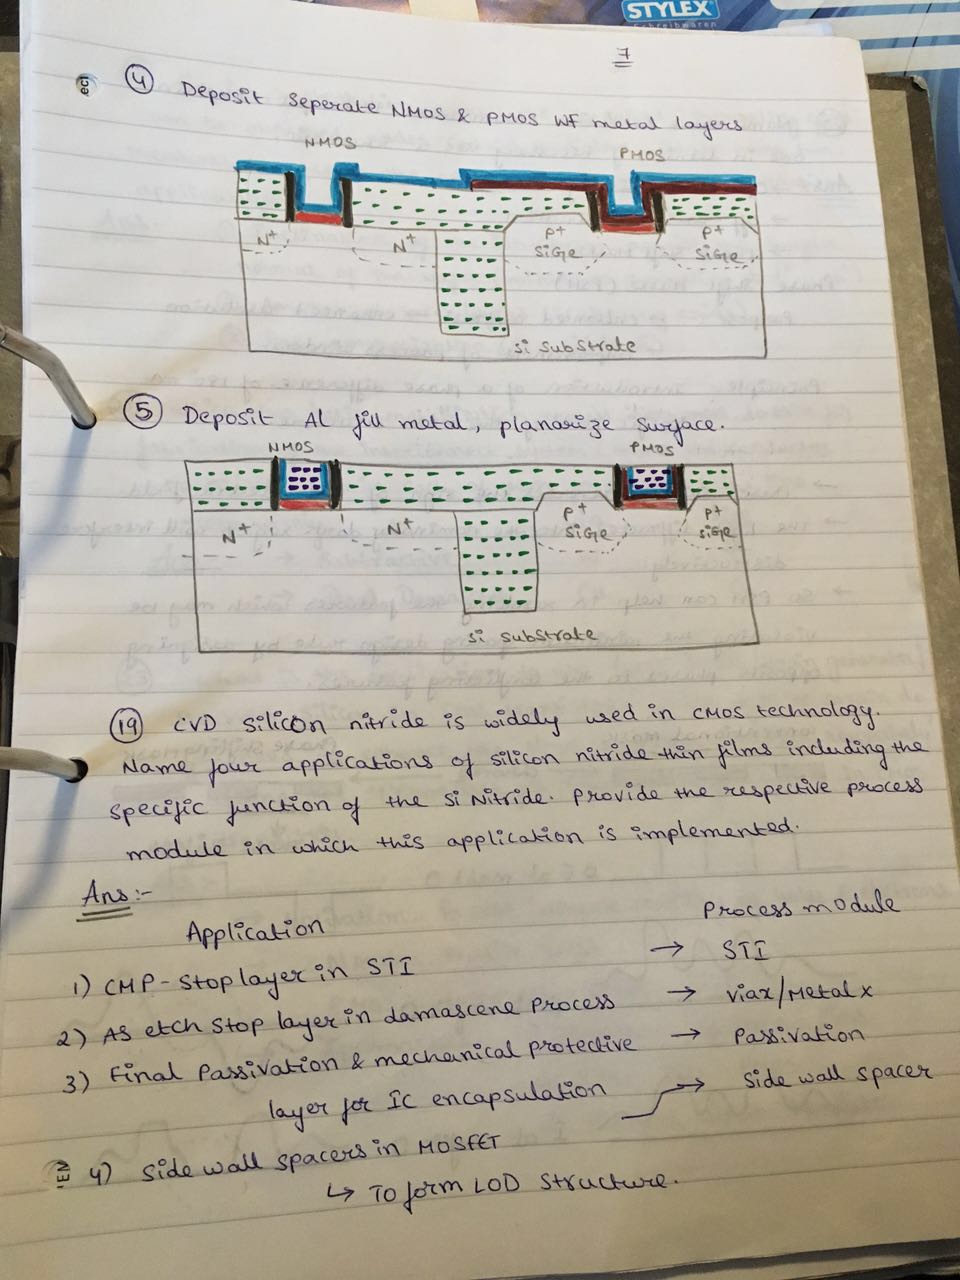 STYLEX
Schreibwaren
7
④ Deposit Seperate NMOS & PMOS WF metal layers
NMOS PMOS
N+ N+ P+ SiGe P+ SiGe
Si Substrate
⑤ Deposit Al fill metal, planarize Surface.
NMOS PMOS
N+ N+ P+ SiGe P+ SiGe
Si Substrate
⑲ CVD Silicon nitride is widely used in CMOS technology.
Name four applications of silicon nitride thin films including the
specific function of the Si Nitride. Provide the respective process
module in which this application is implemented.
Ans:-
Application Process module
1) CMP-Stop layer in STI → STI
2) As etch stop layer in damascene Process → Viax/Metal x
3) Final Passivation & mechanical protective → Passivation
layer for IC encapsulation
4) Side wall spacers in MOSFET → Side wall spacer
↳ To form LOD Structure.